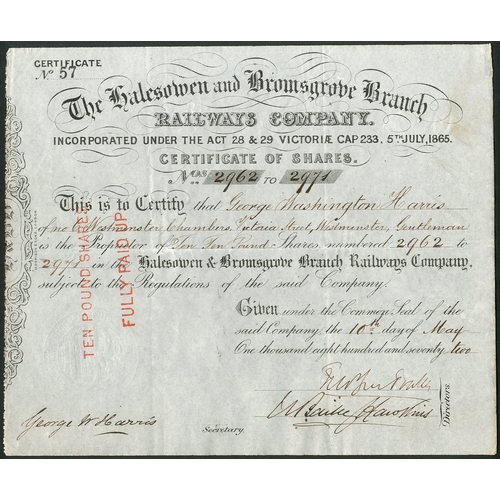 CERTIFICATE
No 57
The Halesowen and Bromsgrove Branch
RAILWAYS COMPANY.
INCORPORATED UNDER THE ACT 28 & 29 VICTORIÆ CAP 233, 5TH JULY, 1865.
CERTIFICATE OF SHARES.
Nos 2962 TO 2971
This is to Certify that George Washington Harris
of no Westminster Chambers, Victoria Street, Westminster, Gentleman
is the Proprietor of Ten Ten Pound Shares, numbered 2962 to
2971 in the Halesowen & Bromsgrove Branch Railways Company,
subject to the Regulations of the said Company.
Given under the Common Seal of the
said Company, the 10th day of May
One thousand eight hundred and seventy two
TEN POUND SHARES
FULLY PAID UP
Directors.
George W Harris
Secretary.